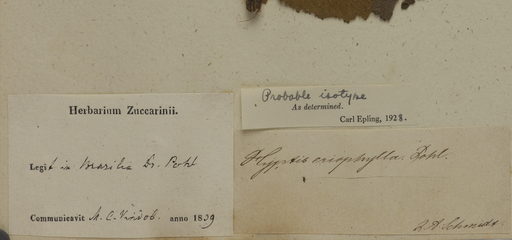 Herbarium Zuccarinii.
Legit in Brasilia Dr. Pohl
Communicavit M. C. Vindob. anno 1839
Probable isotype
As determined.
Carl Epling, 1928.
Hyptis eriophylla. Pohl.
A. Schmidt